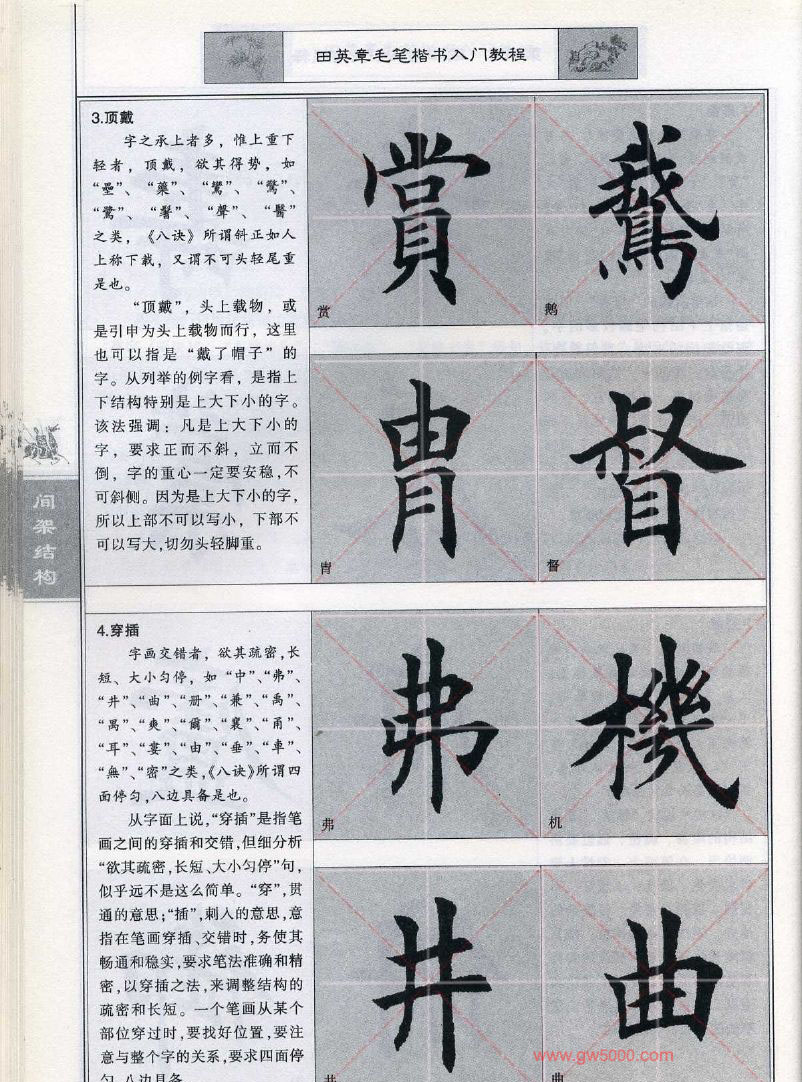 田英章毛笔楷书入门教程
3.顶戴
字之承上者多，惟上重下
轻者，顶戴，欲其得势，如
“壘”、“藥”、“鸞”、“驚”、
“鷺”、“髫”、“聲”、“醫”
之类，《八诀》所谓斜正如人
上称下载，又谓不可头轻尾重
是也。
“顶戴”，头上载物，或
是引申为头上载物而行，这里
也可以指是“戴了帽子”的
字。从列举的例字看，是指上
下结构特别是上大下小的字。
该法强调：凡是上大下小的
字，要求正而不斜，立而不
倒，字的重心一定要安稳,不
可斜侧。因为是上大下小的字,
所以上部不可以写小，下部不
可以写大,切勿头轻脚重。
賞
赏
鵝
鹅
胄
胄
督
督
间架结构
4.穿插
字画交错者，欲其疏密,长
短、大小匀停，如“中”、“弗”、
“井”、“曲”、“册”、“兼”、“禹”、
“禺”、“爽”、“爾”、“襄”、“甬”、
“耳”、“婁”、“由”、“垂”、“車”、
“無”、“密”之类,《八诀》所谓四
面停匀,八边具备是也。
从字面上说,“穿插”是指笔
画之间的穿插和交错,但细分析
“欲其疏密,长短、大小匀停”句,
似乎远不是这么简单。“穿”,贯
通的意思;“插”,刺入的意思,意
指在笔画穿插、交错时,务使其
畅通和稳实,要求笔法准确和精
密,以穿插之法,来调整结构的
疏密和长短。一个笔画从某个
部位穿过时,要找好位置,要注
意与整个字的关系,要求四面停
匀,八边具备
弗
弗
機
机
井
井
曲
曲
www.gw5000.com